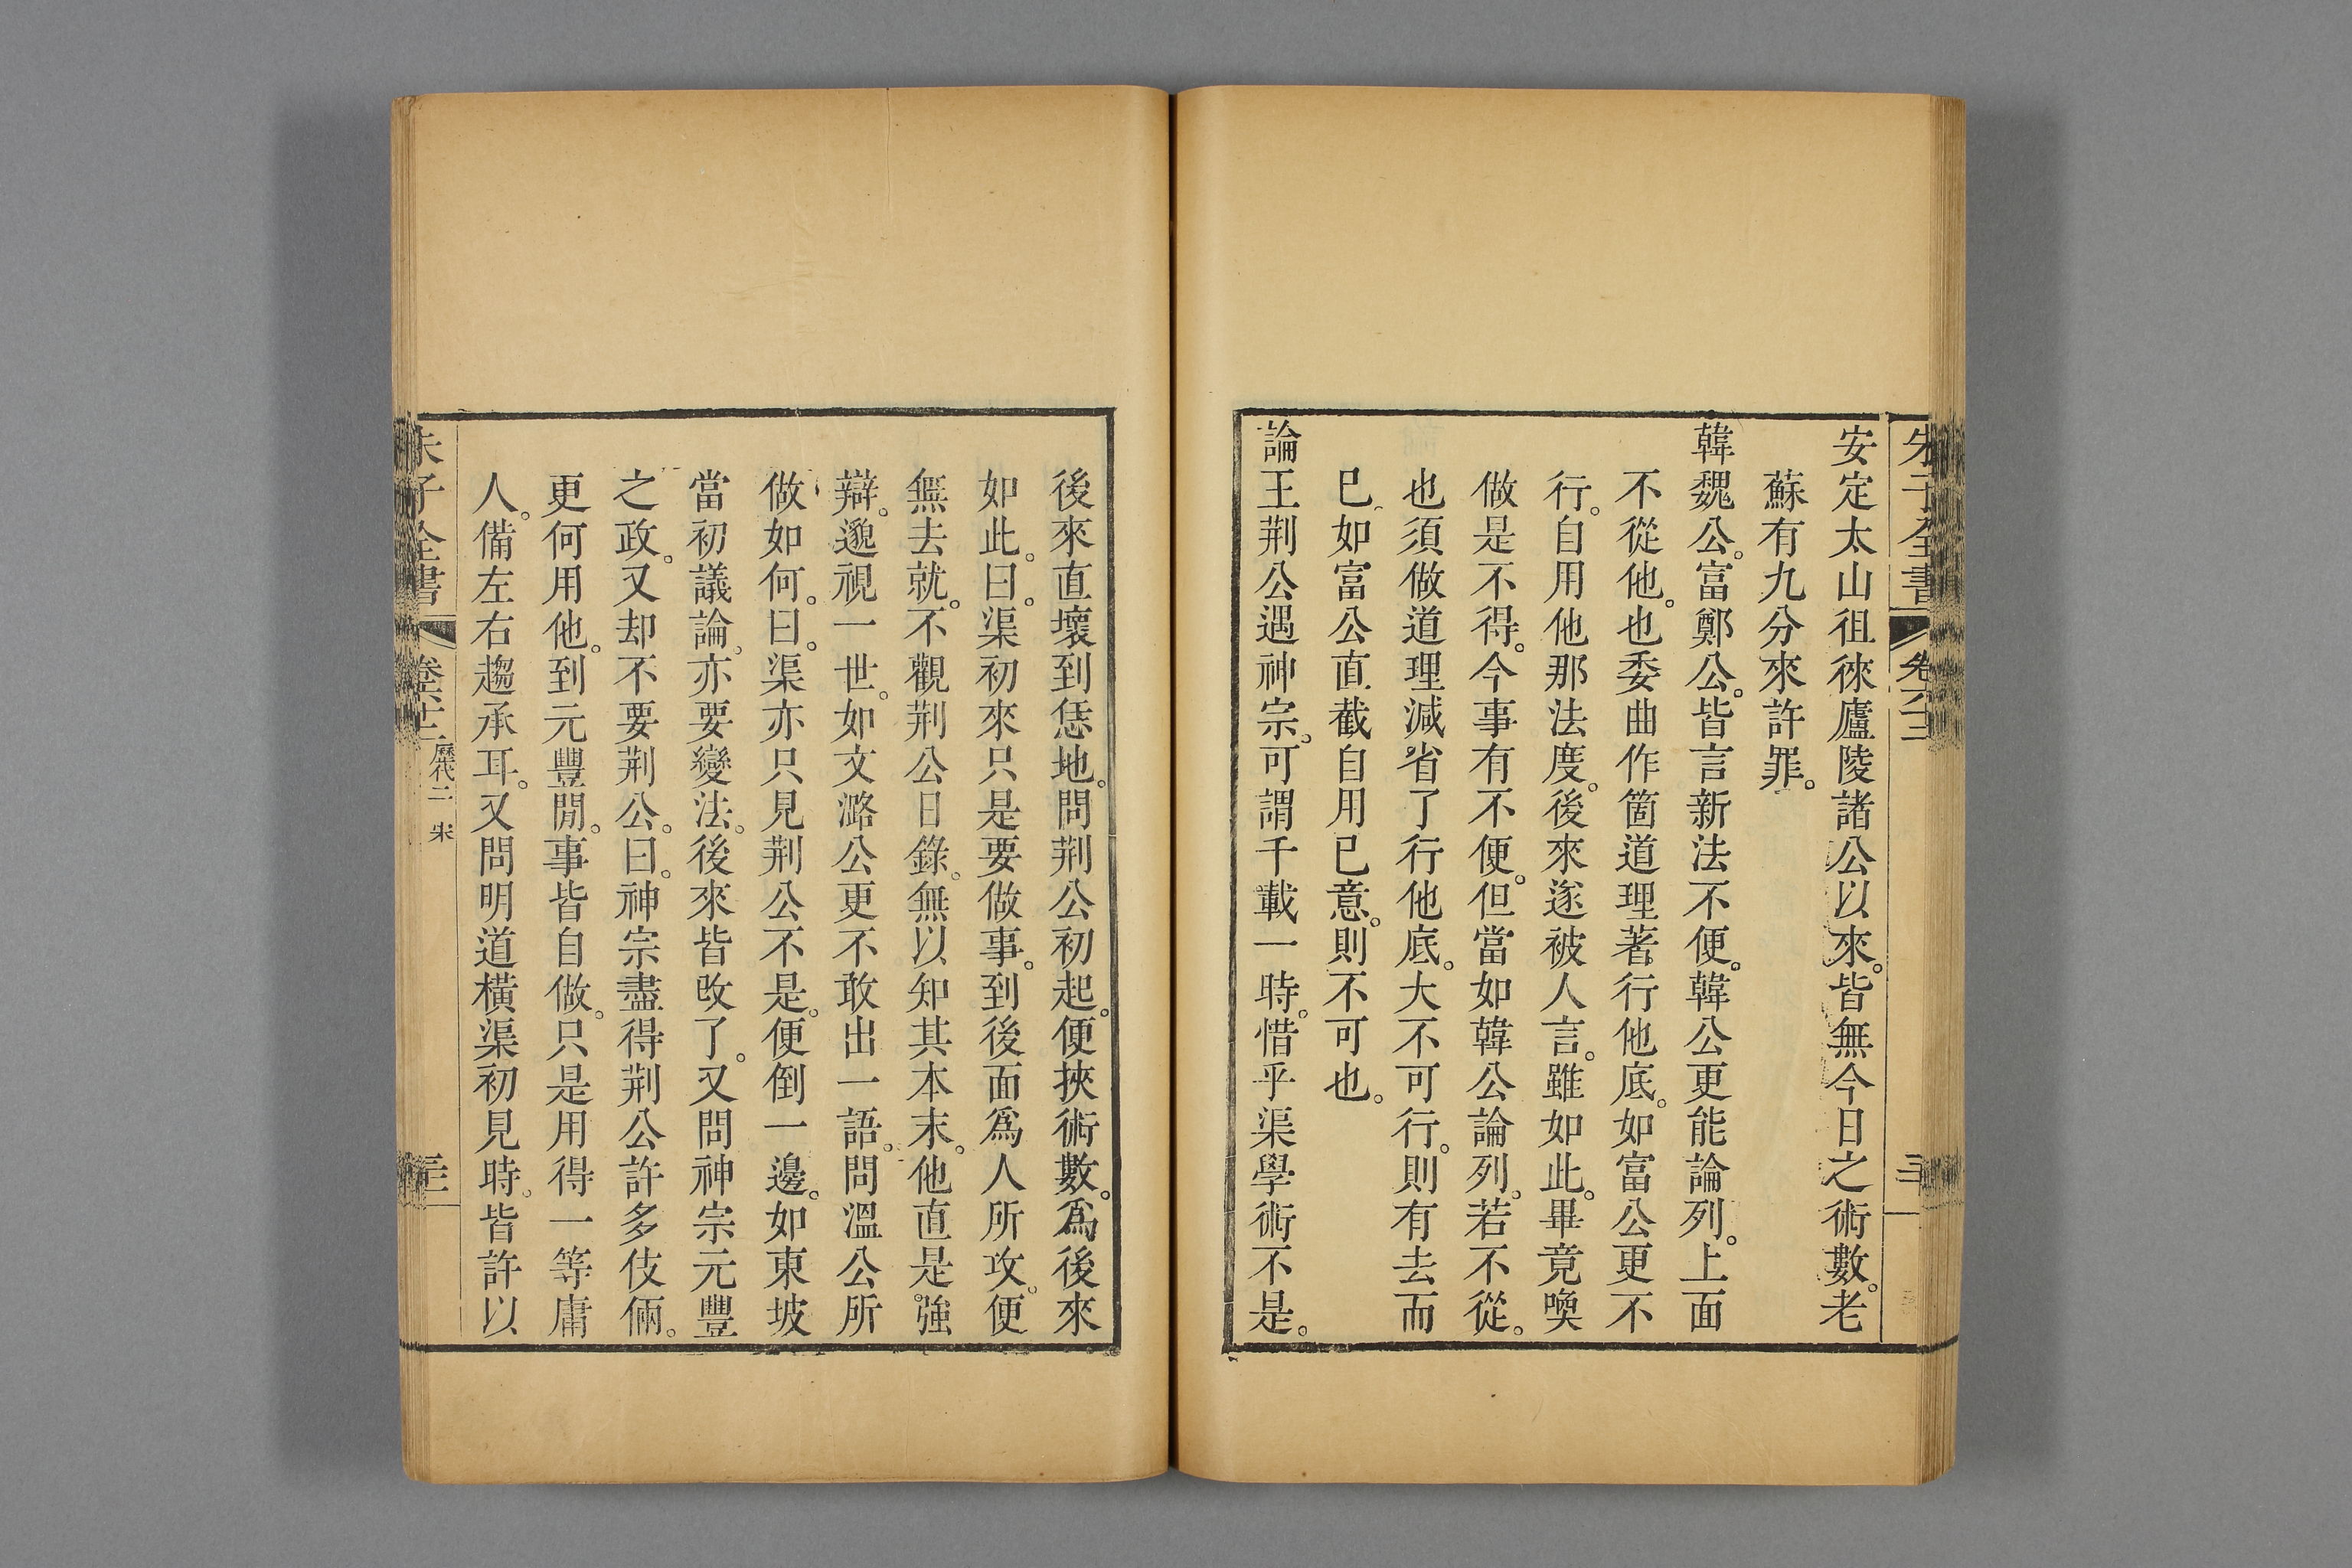 安定太山徂徠廬陵諸公以來。皆無今日之術數。老
蘇有九分來許罪。
韓魏公。富鄭公。皆言新法不便。韓公更能論列。上面
不從他。也委曲作箇道理著行他底。如富公更不
行。自用他那法度。後來遂被人言。雖如此。畢竟喚
做是不得。今事有不便。但當如韓公論列。若不從。
也須做道理減省了行他底。大不可行。則有去而
已。如富公直截自用已意。則不可也。
論王荆公遇神宗。可謂千載一時。惜乎渠學術不是。
後來直壞到恁地。問荆公初起。便挾術數。爲後來
如此。曰。渠初來只是要做事。到後面爲人所攻。便
無去就。不觀荆公日錄。無以知其本末。他直是強
辯。邈視一世。如文潞公更不敢出一語。問溫公所
做如何。曰。渠亦只見荆公不是。便倒一邊。如東坡
當初議論。亦要變法。後來皆改了。又問神宗元豐
之政。又却不要荆公。曰。神宗盡得荆公許多伎倆。
更何用他。到元豐間。事皆自做。只是用得一等庸
人。備左右趨承耳。又問明道橫渠初見時。皆許以
朱子全書
歷代二 宋